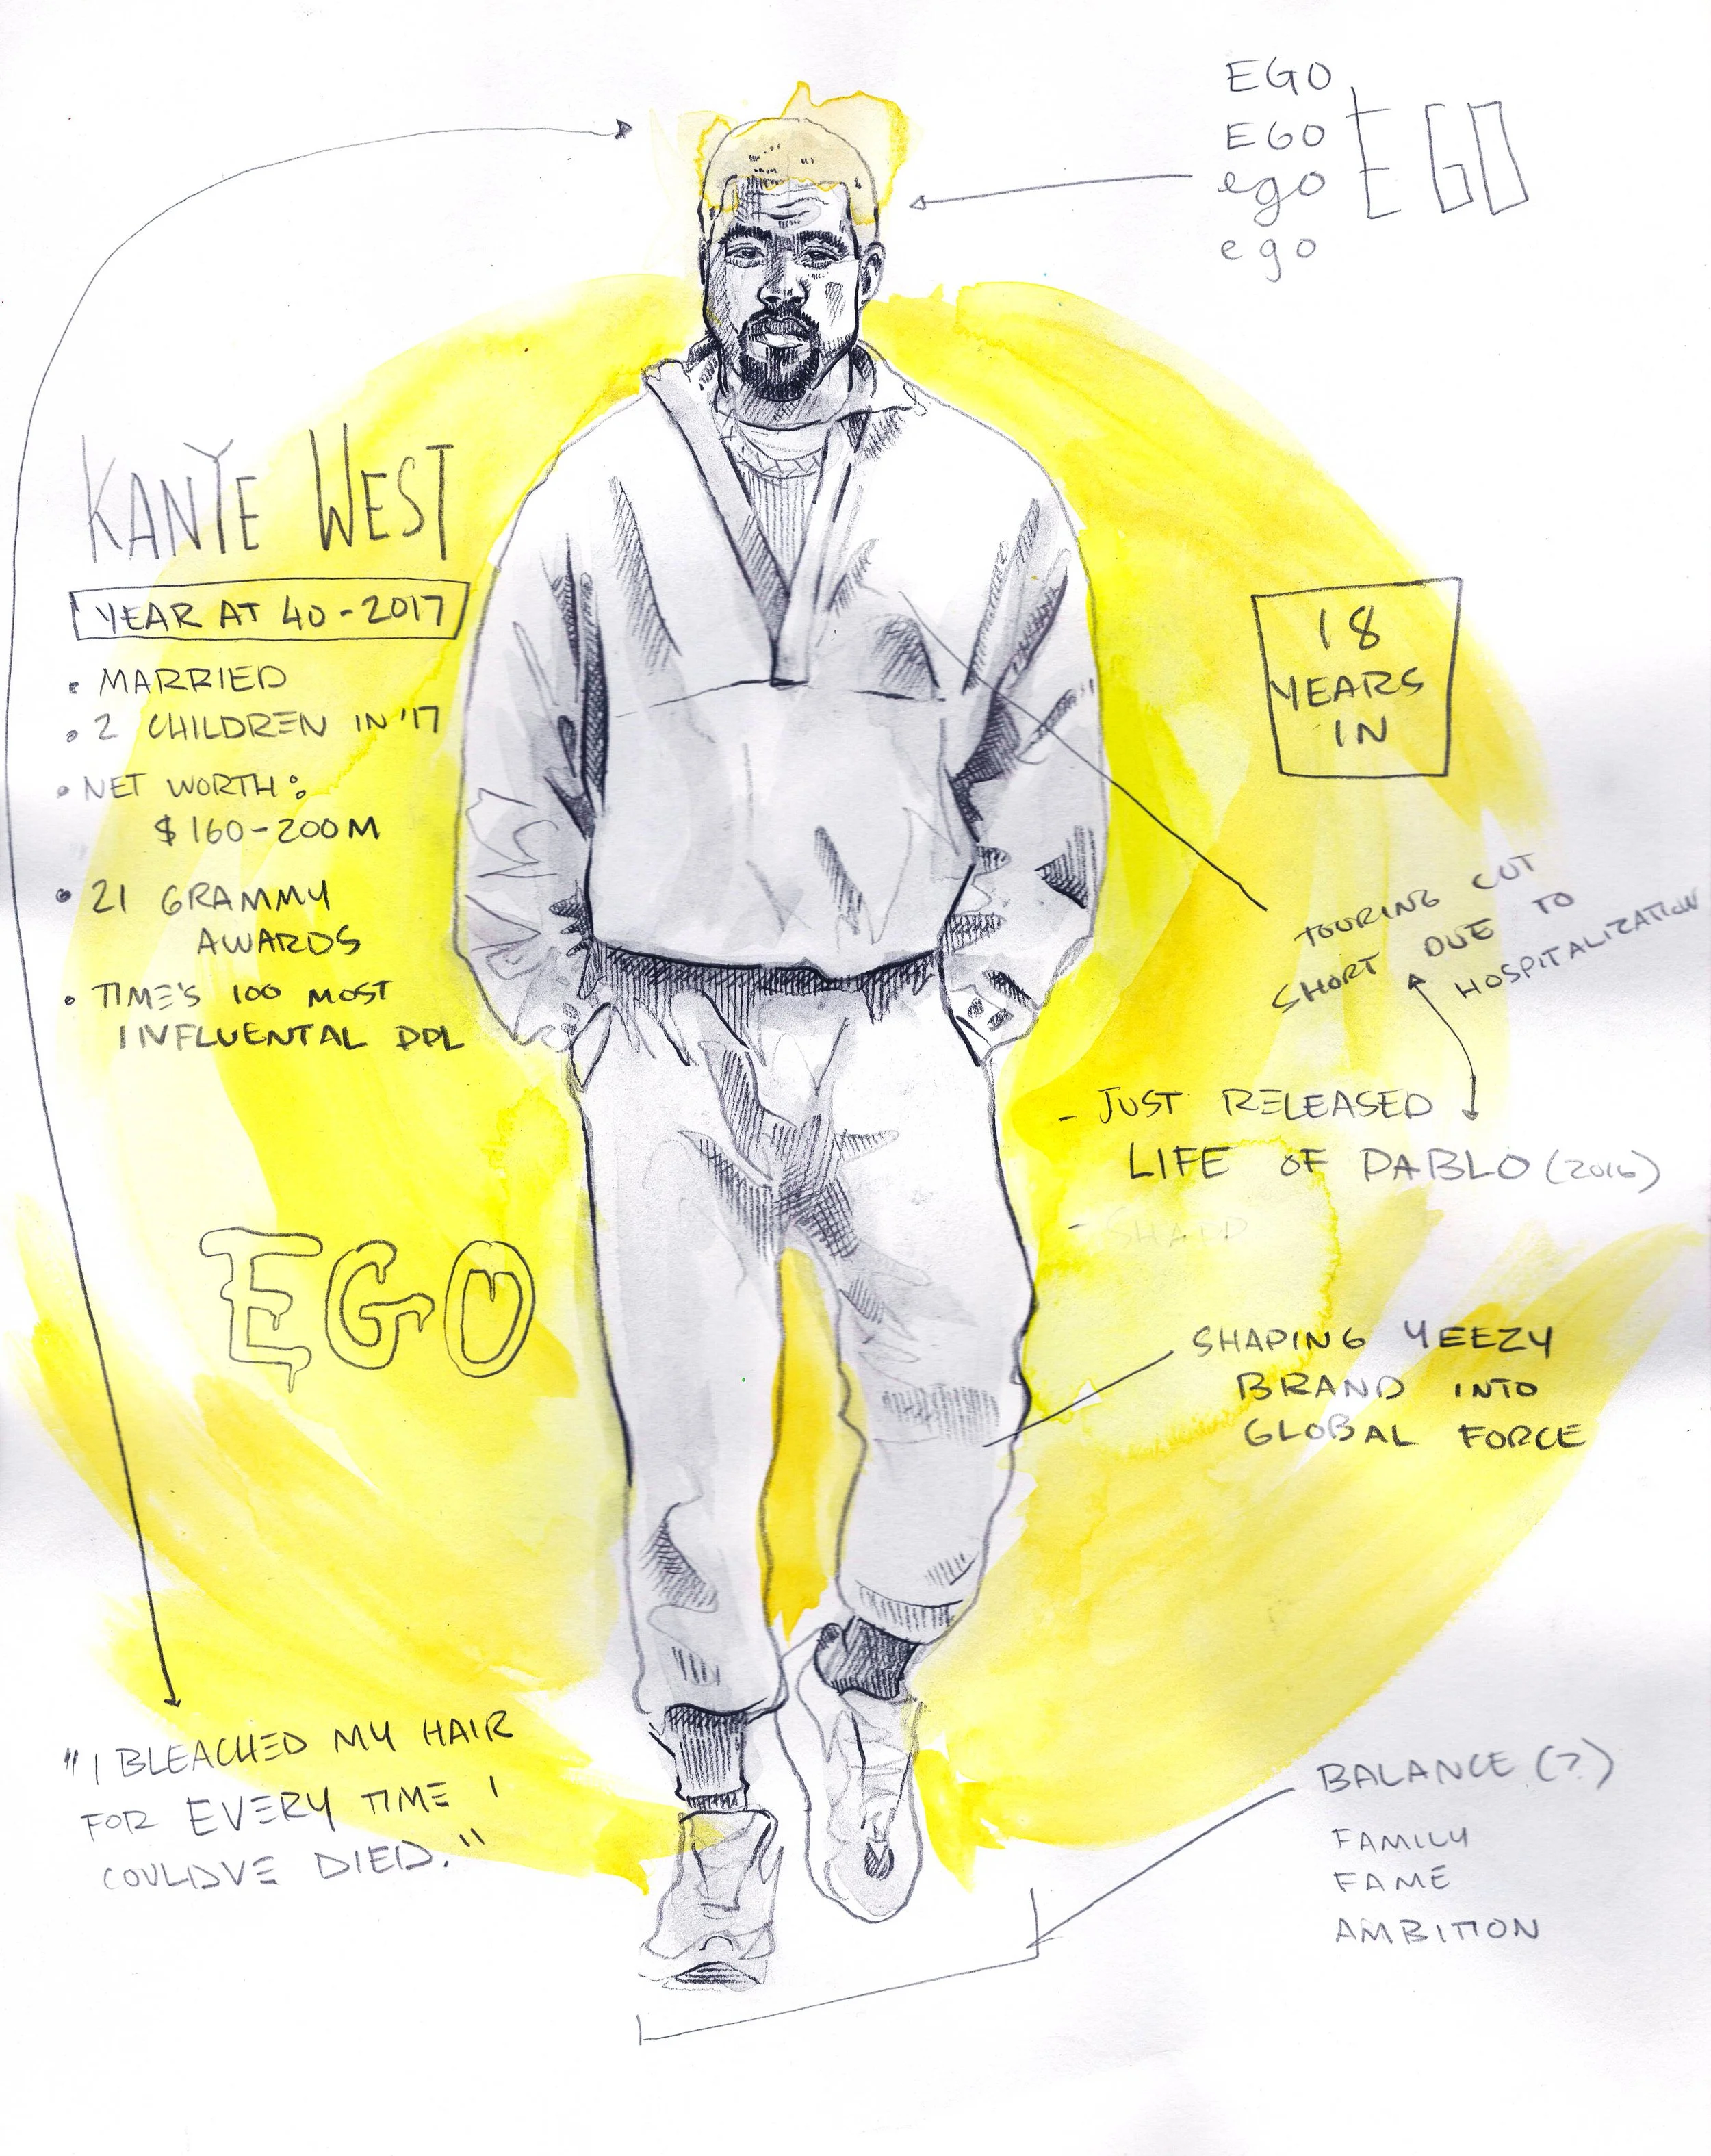 EGO
EGO
ego
ego
EGO
KANYE WEST
YEAR AT 40 - 2017
• MARRIED
• 2 CHILDREN IN '17
• NET WORTH:
$160-200M
• 21 GRAMMY
AWARDS
• TIME'S 100 MOST
INFLUENTAL PPL
18
YEARS
IN
TOURING CUT
SHORT DUE TO
HOSPITALIZATION
- JUST RELEASED
LIFE OF PABLO (2016)
EGO
SHAPING YEEZY
BRAND INTO
GLOBAL FORCE
"I BLEACHED MY HAIR
FOR EVERY TIME I
COULDVE DIED."
BALANCE (?)
FAMILY
FAME
AMBITION